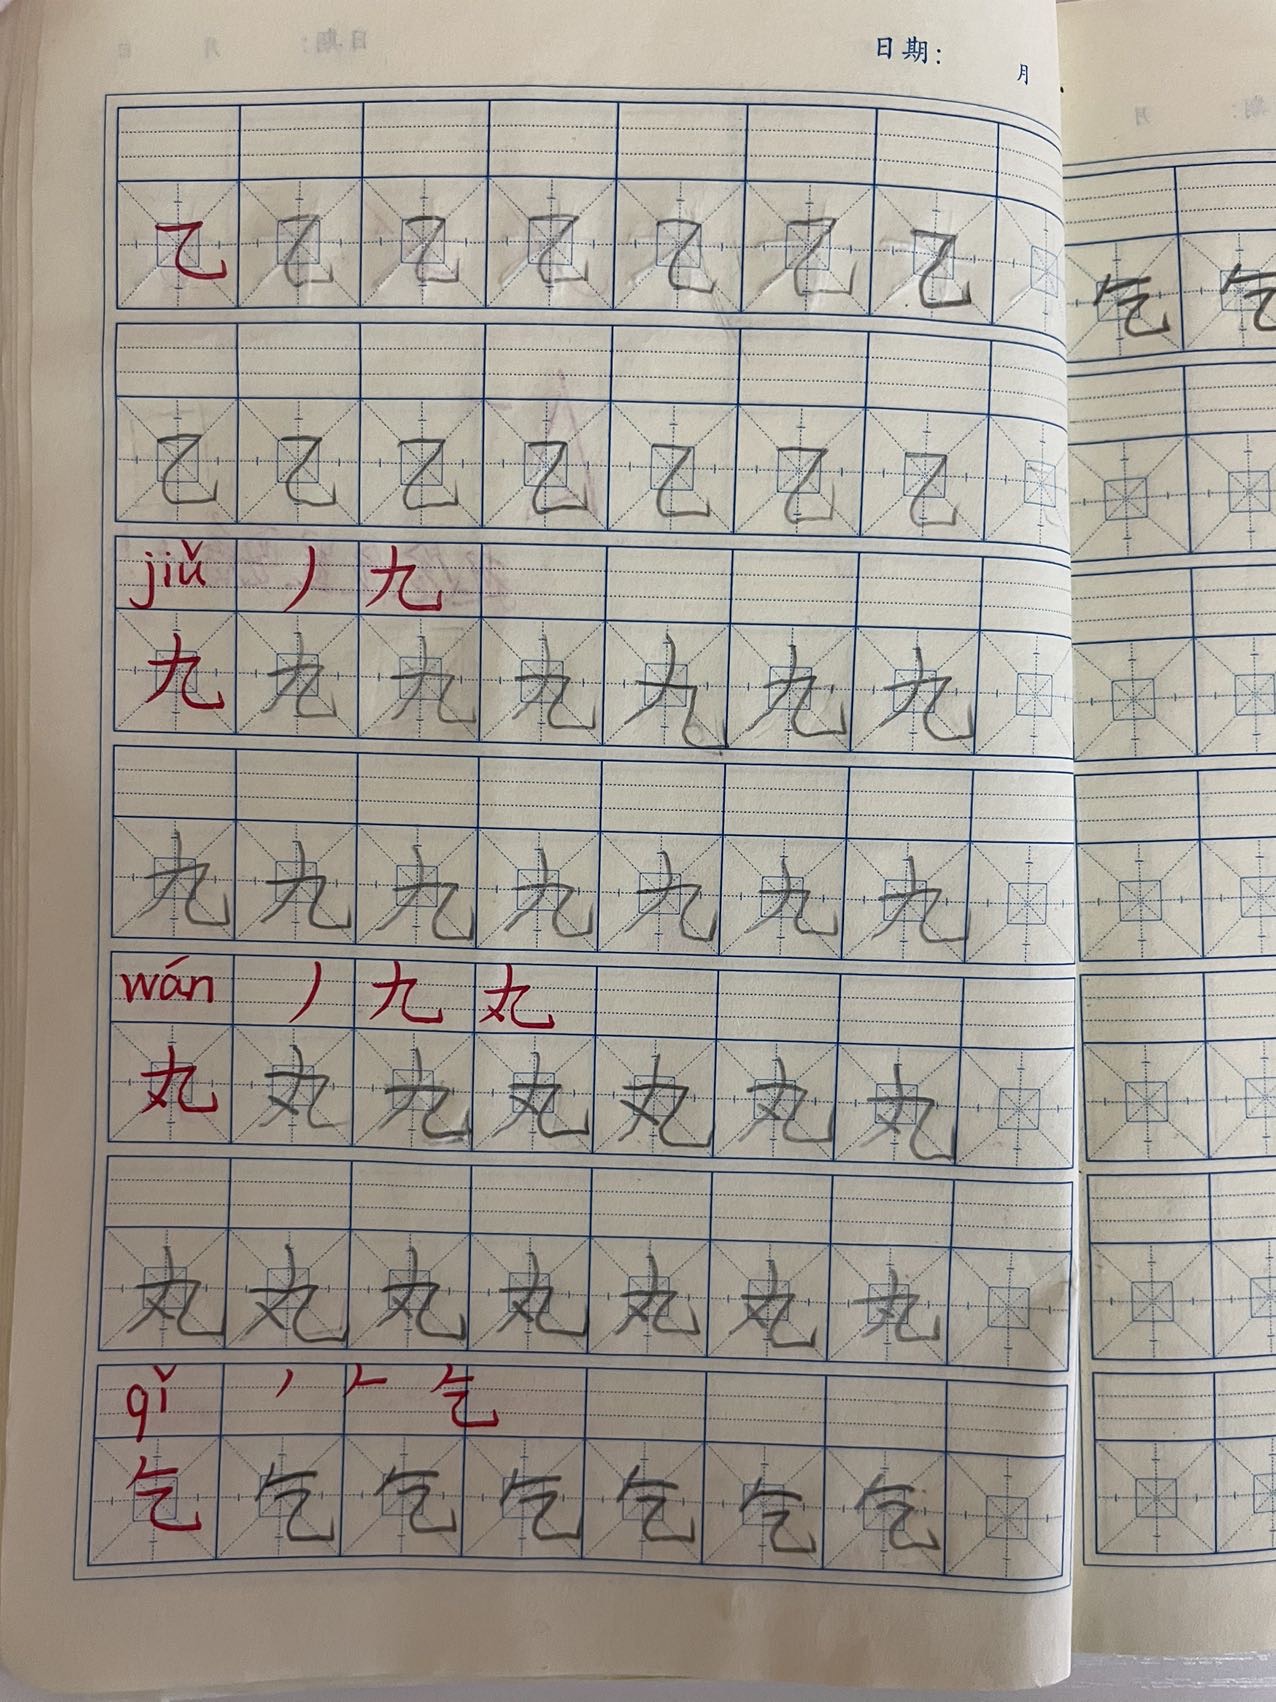 日期: 月
乙 乙 乙 乙 乙 乙 乙
乙 乙 乙 乙 乙 乙 乙
jiǔ 丿 九
九 九 九 九 九 九 九
九 九 九 九 九 九 九
wán 丿 九 丸
丸 丸 九 丸 丸 丸 丸
丸 丸 丸 丸 丸 丸 丸
qǐ 丿 𠂉 乞
乞 乞 乞 乞 乞 乞 乞
乞 乞